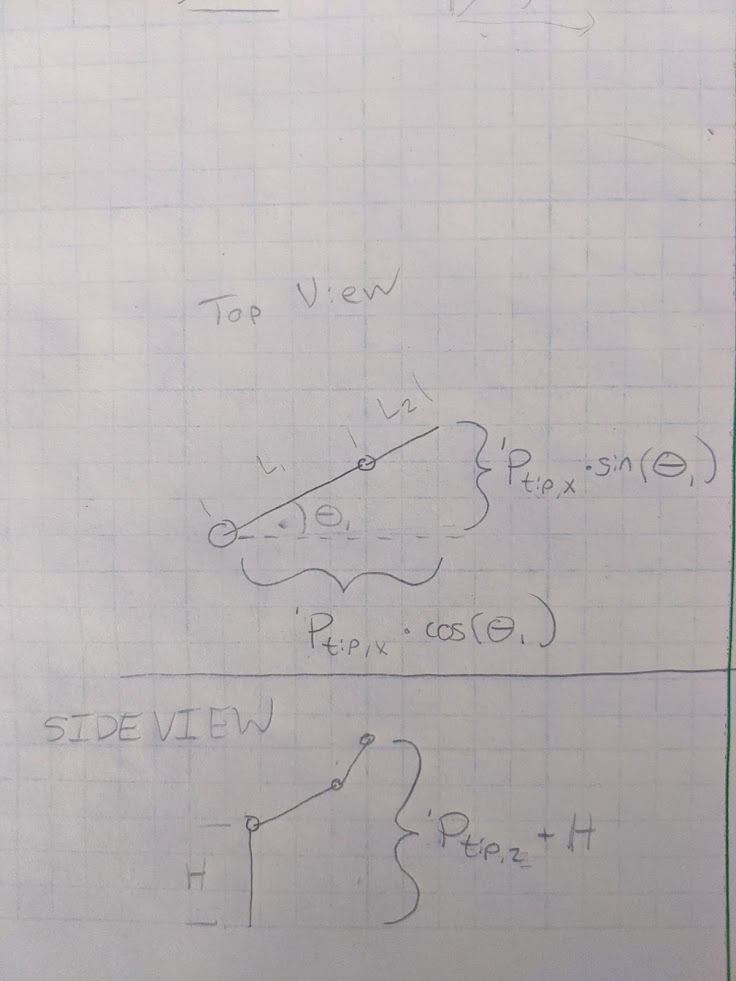 Top View
L₂
L₁
θ₁
¹P_tip,x · sin(θ₁)
¹P_tip,x · cos(θ₁)
SIDE VIEW
H
¹P_tip,z + H